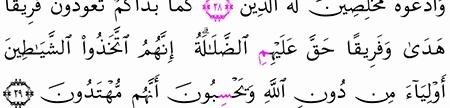 وَادْعُوهُ مُخْلِصِينَ لَهُ الدِّينَ ٢٨ كَمَا بَدَأَكُمْ تَعُودُونَ فَرِيقًا
هَدَىٰ وَفَرِيقًا حَقَّ عَلَيْهِمِ الضَّلَٰلَةُۗ إِنَّهُمُ اتَّخَذُوا الشَّيَٰطِينَ
أَوْلِيَآءَ مِن دُونِ اللَّهِ وَيَحْسِبُونَ أَنَّهُم مُّهْتَدُونَ ٢٩